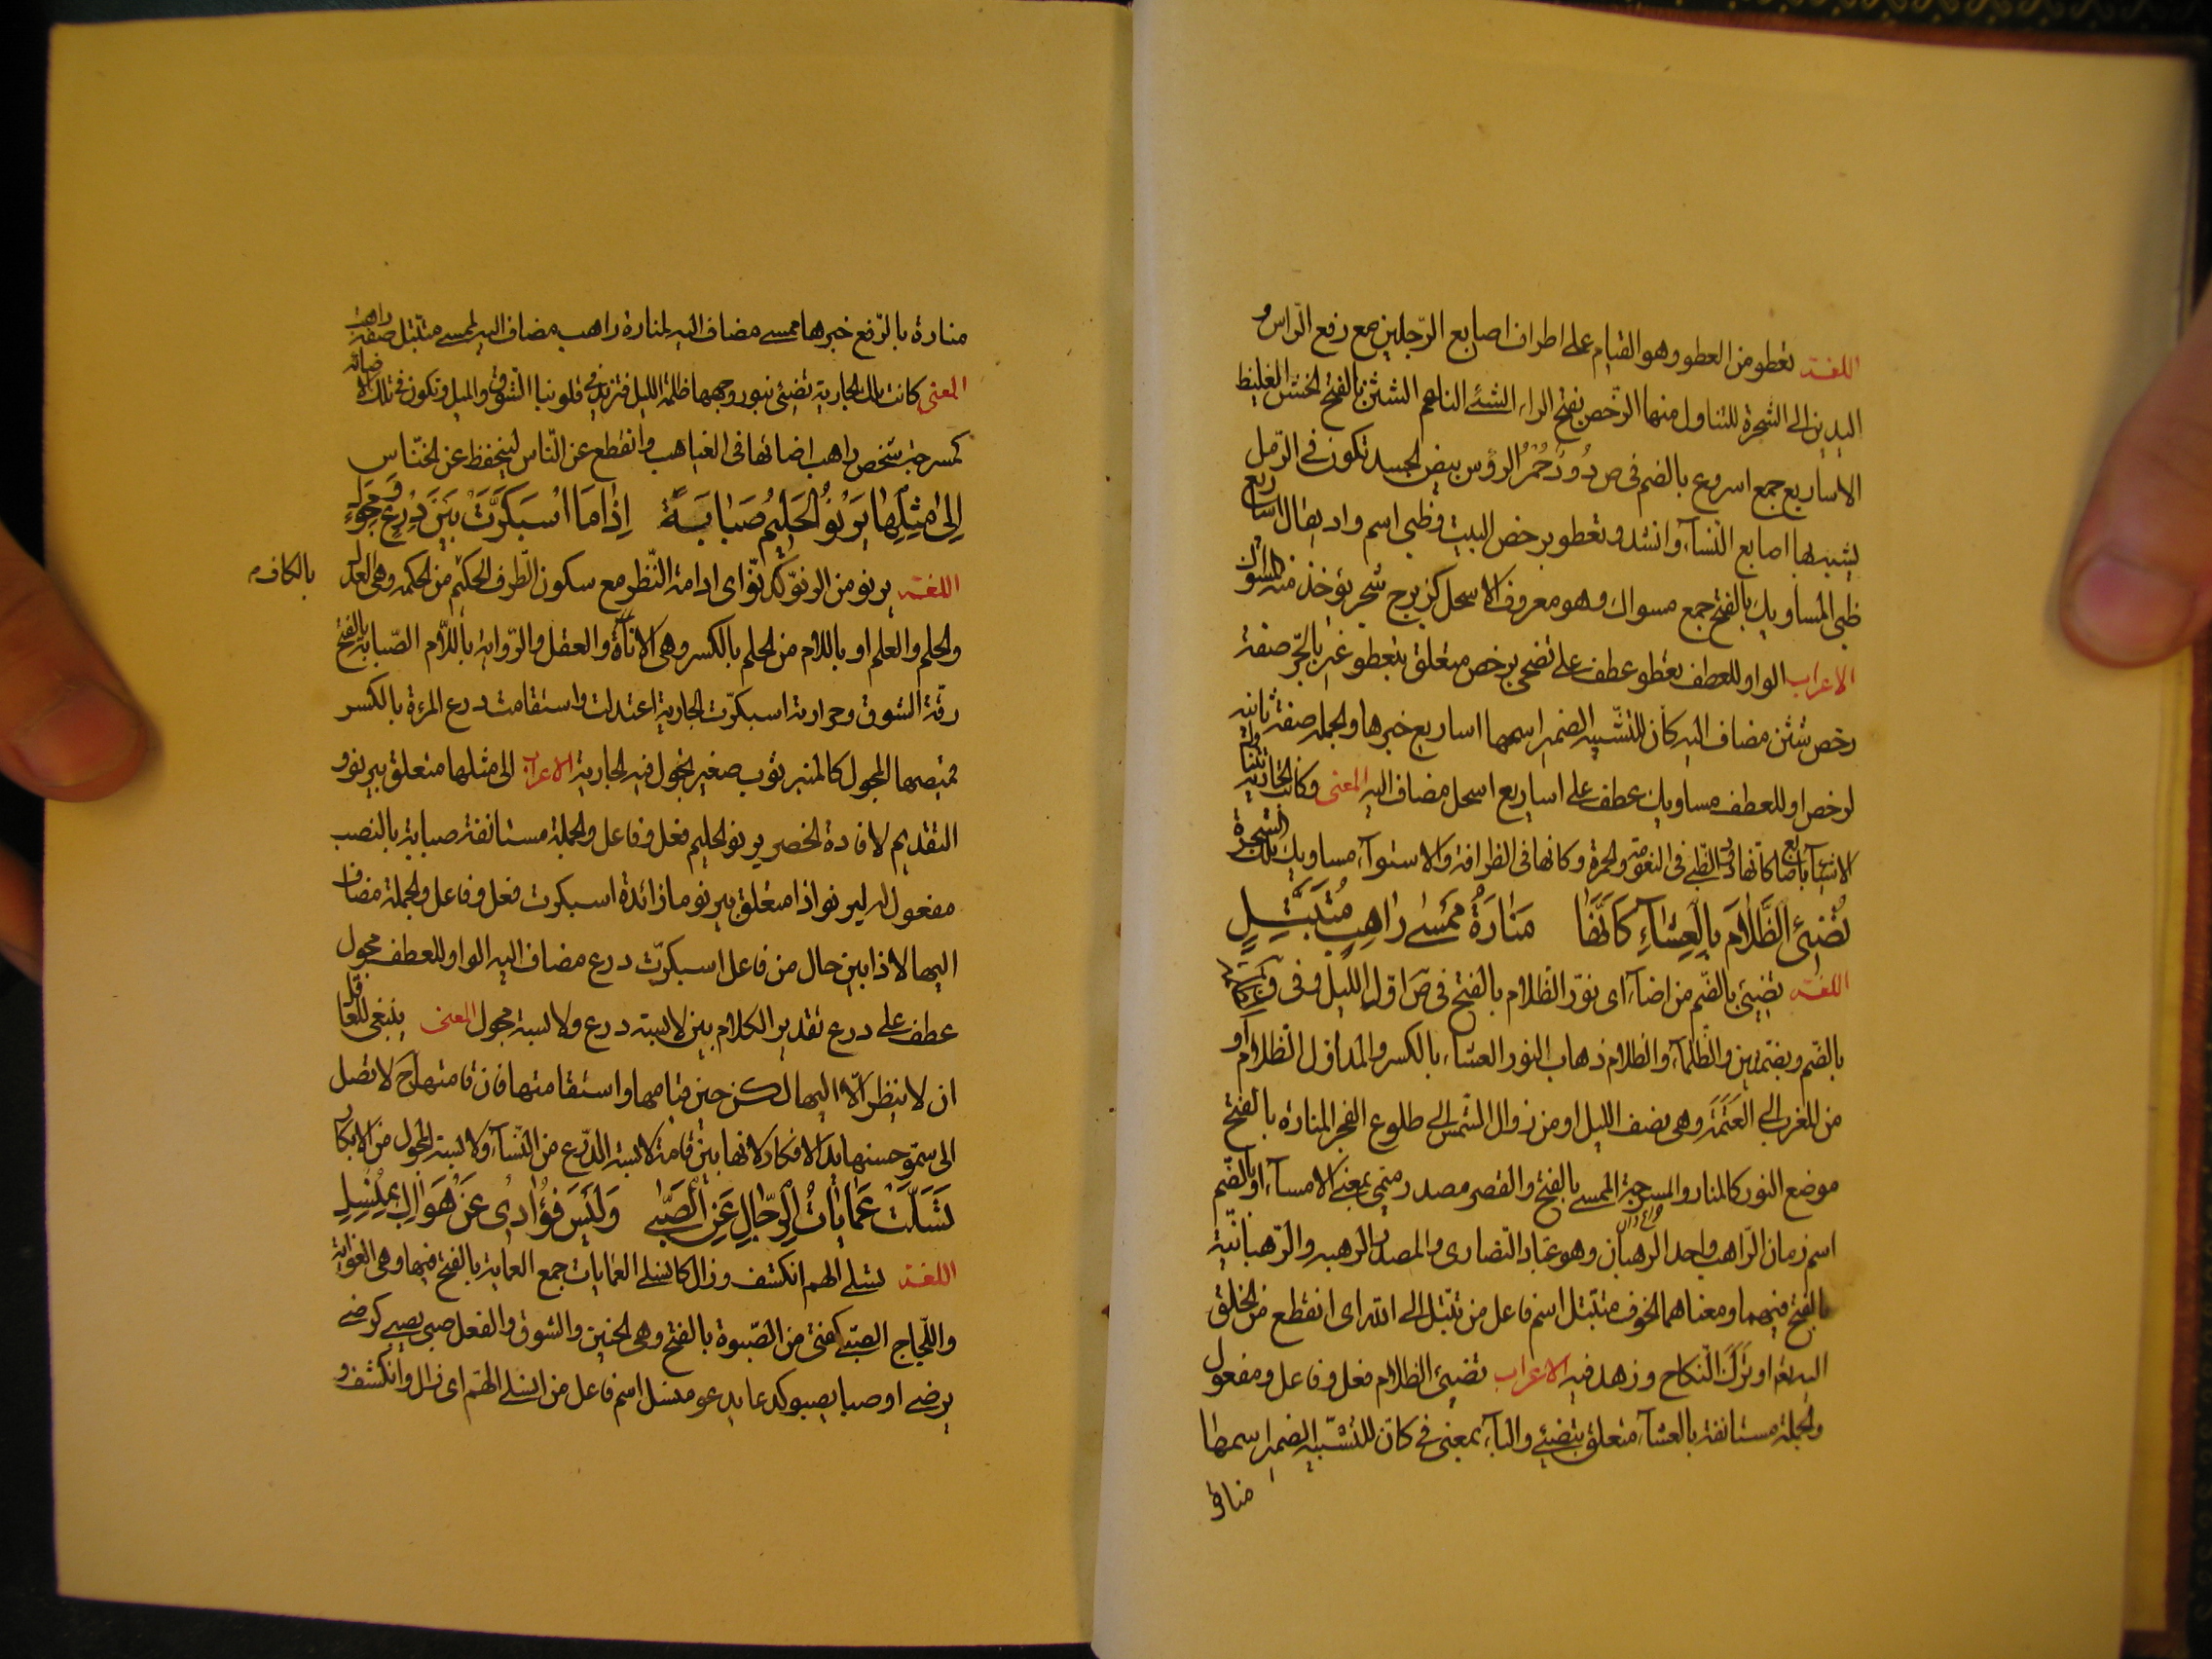 اللغة تعطو من العطو وهو القيام على اطراف اصابع الرّجلين مع رفع الرّاس و
اليدين الى الشجرة للتناول منها الرّخص بفتح الراء الشئ الناعم الشثن بالفتح الخشن الغليظ
الاساريع جمع اسروع بالضم في ص دُودٌ حُمْرُ الرؤس بيض الجسد تكون في الرّمل
يشبه بها اصابع النّسآء وانشد وتعطو برخص البيت وظبى اسم واد يقال اساريع
ظبى المساويك بالفتح جمع مسواك وهو معروف الاسحل كزبرج شجر يؤخذ منه المسواك
الاعراب الواو للعطف تعطو عطف على تضحى برخص متعلق بتعطو غير بالجرّ صفة
رخص شثن مضاف اليه كأن للتشبيه الضمير اسمها اساريع خبرها والجملة صفة ثانية
لرخص او للعطف مساويك عطف على اساريع اسحل مضاف اليه المعنى وكانت الجارية تتناول
الاشيآء باصابع كانّها دود الظبى فى النعومة والحمرة وكانها فى الظرافة والاستوآء مساويك تلك الشجرة
تُضِيئُ الظَّلَامَ بِالْعِشَاءِ كَاَنَّهَا مَنَارَةُ مُمْسَى رَاهِبٍ مُتَبَتِّلِ
اللغة تضيئ بالضّم من اضآء اى نوّر الظّلام بالفتح فى ص اوّل الليل وفى ق
بالضّم وبضمتين والظلمآء والظلام ذهاب النور العشاء بالكسر والمد اوّل الظلام او
من المغرب الى العَتَمَة وهى نصف الليل او من زوال الشّمس الى طلوع الفجر المنارة بالفتح
موضع النور كالمنار والمسرجة الممسى بالفتح والقصر مصدر ميمى بمعنى الامسآء او بالضّم
اسم زمان الرّاهب واحد الرهبان وهو عبّاد النّصارى والمصدر الرهبة والرّهبانيّة
بالفتح فيهما ومعناهما الخوف متبتّل اسم فاعل من تبتّل الى اللّه اى انقطع من الخلق
اليه او تَرَكَ النّكاح وزهد فيه الاعراب تضيئ الظلام فعل وفاعل ومفعول
والجملة مستانفة بالعشآء متعلق بتضيئ والبآء بمعنى فى كان للتشبيه الضمير اسمها
منارة
منارة بالرّفع خبرها ممسى مضاف اليه لمنارة راهب مضاف اليه لممسى متبتّل صفة راهب
المعنى كانت تلك الجارية تضيئ بنور وجهها ظلمة الليل فتزيد فى قلوبنا الشّوق والميل وتكون فى تلك الاضائة
كمسرجة شخص راهب اضائها فى الغياهب وانقطع عن النّاس ليتحفظ عن الخنّاس
اِلَى مِثْلِهَا يَرْنُو الْحَلِيمُ صَبَابَةً اِذَا مَا اسْبَكَرَّتْ بَيْنَ دِرْعٍ وَمِجْوَلِ
اللغة يرنو من الرنوّ كدنوّ اى ادامة النّظر مع سكون الطّرف الحكيم من الحكمة وهى العدل بالكاف
والحلم والعلم او باللام من الحلم بالكسر وهى الاناة والعقل والرّواية باللّام الصّبابة بالفتح
رقّة الشوق وحرارته اسبكرّت الجارية اعتدلت واستقامت درع المرءة بالكسر
قميصها المجول كالمنبر ثوب صغير تجول فيه الجارية الاعراب الى مثلها متعلق بيرنو و
التقديم لافادة الحصر يرنو الحليم فعل وفاعل والجملة مستانفة صبابة بالنصب
مفعول له ليرنو اذا متعلق بيرنو ما زائدة اسبكرت فعل وفاعل والجملة مضاف
اليها لاذا بين حال من فاعل اسبكرّت درع مضاف اليه الواو للعطف مجول
عطف على درع تقدير الكلام بين لابسة درع ولابسة مجول المعنى ينبغى للعاقل
ان لا ينظر الّا اليها لكن حين قيامها واستقامتها فان قامتها ح لا تصل
الى سموّ حسنها يد الافكار لانها بين قامة لابسة الدّرع من النّسآء ولابسة المجول من الابكار
تَسَلَّتْ عَمَايَاتُ الرِّجَالِ عَنِ الصِّبَى وَلَيْسَ فُؤَادِى عَنْ هَوَاكِ بِمُنْسَلِ
اللغة تسلى الهم انكشف وزال كانسلى العمايات جمع العماية بالفتح فيها وهى الغواية
واللّجاج الصّبى من الصّبوة بالفتح وهى الحنين والشوق والفعل صبى يصبى كرضى
يرضى او صبا يصبو كدعا يدعو منسل اسم فاعل من انسلى الهّم اى زال وانكشف و